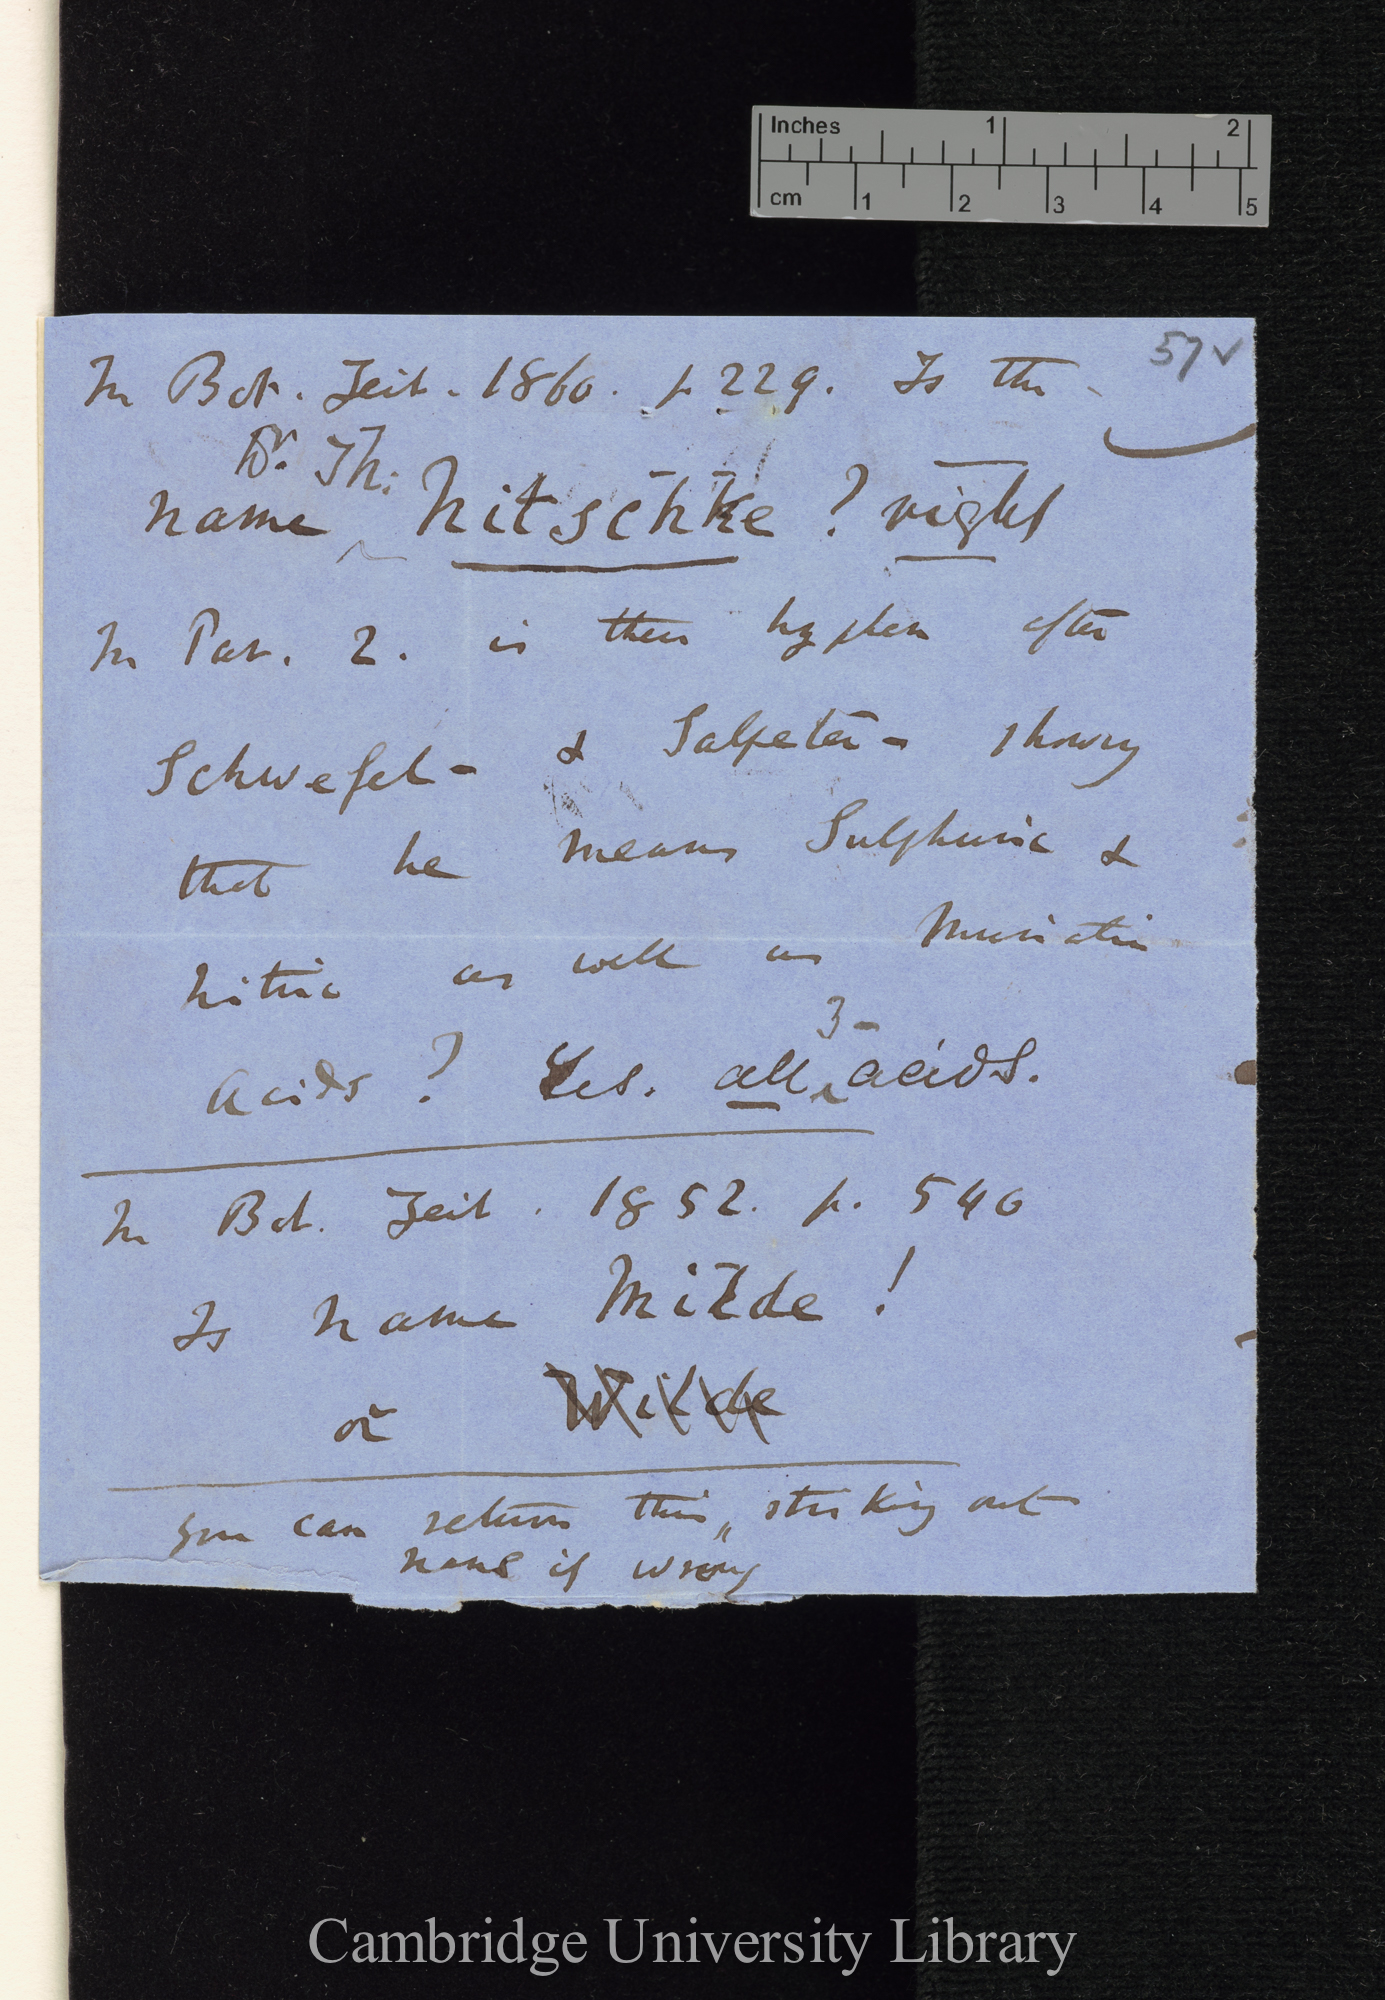 Inches 1 2
cm 1 2 3 4 5
57v
In Bot. Zeit. 1860. p 229. Is the
Dr. Th.
name Nitschke ? right
In Par. 2. is there hyphen after
Schwefel- & Salpeter- showing
that he means Sulphuric &
Nitric as well as Muriatic
3-
acids ? Yes. all acids.
In Bot. Zeit. 1852. p. 540
Is name Milde !
or Wilde
You can return this, striking out
name if wrong
Cambridge University Library